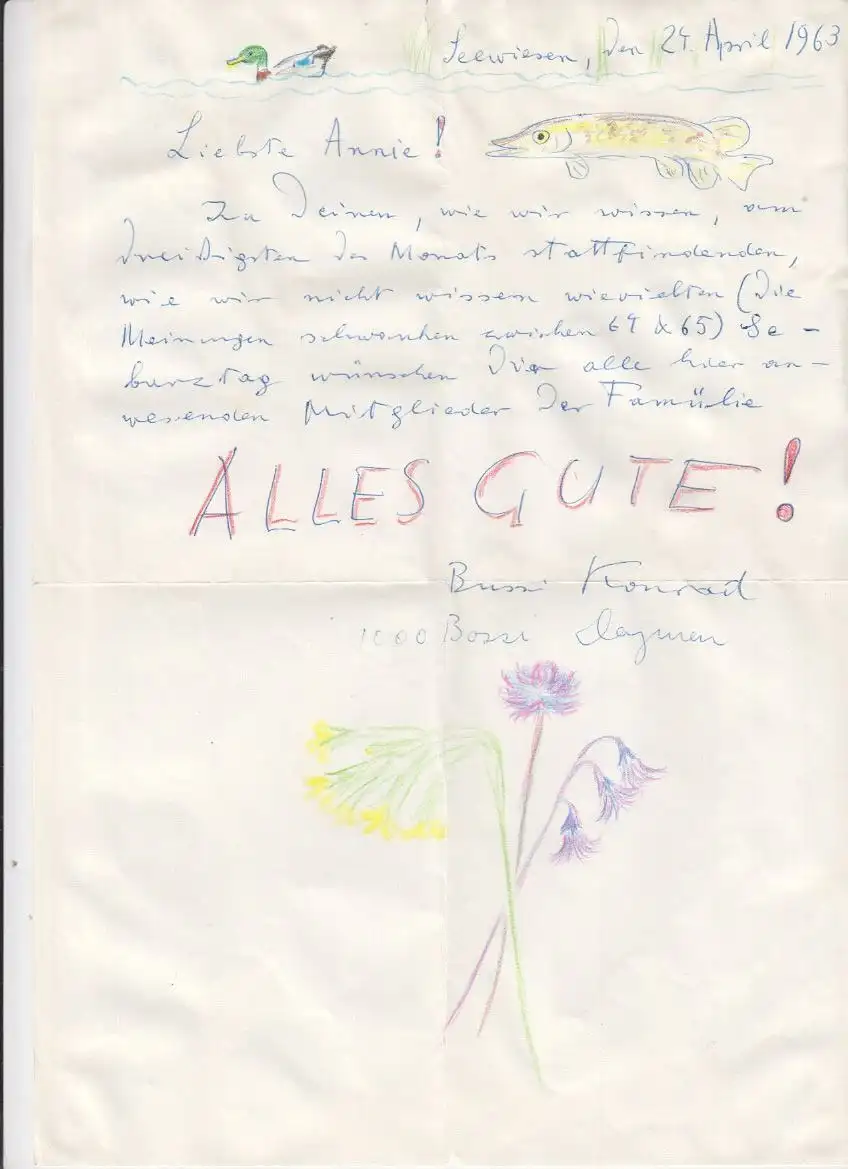 Seewiesen, den 24. April 1963
Liebste Annie!
Zu Deinen, wie wir wissen, am
dreißigsten des Monats stattfindenden,
wie wir nicht wissen wievielten (Die
Meinungen schwanken zwischen 64 & 65) Ge-
burztag wünschen Dir alle hier an-
wesenden Mitglieder der Famülie
ALLES GUTE!
Bussi Konrad
1000 Bossi